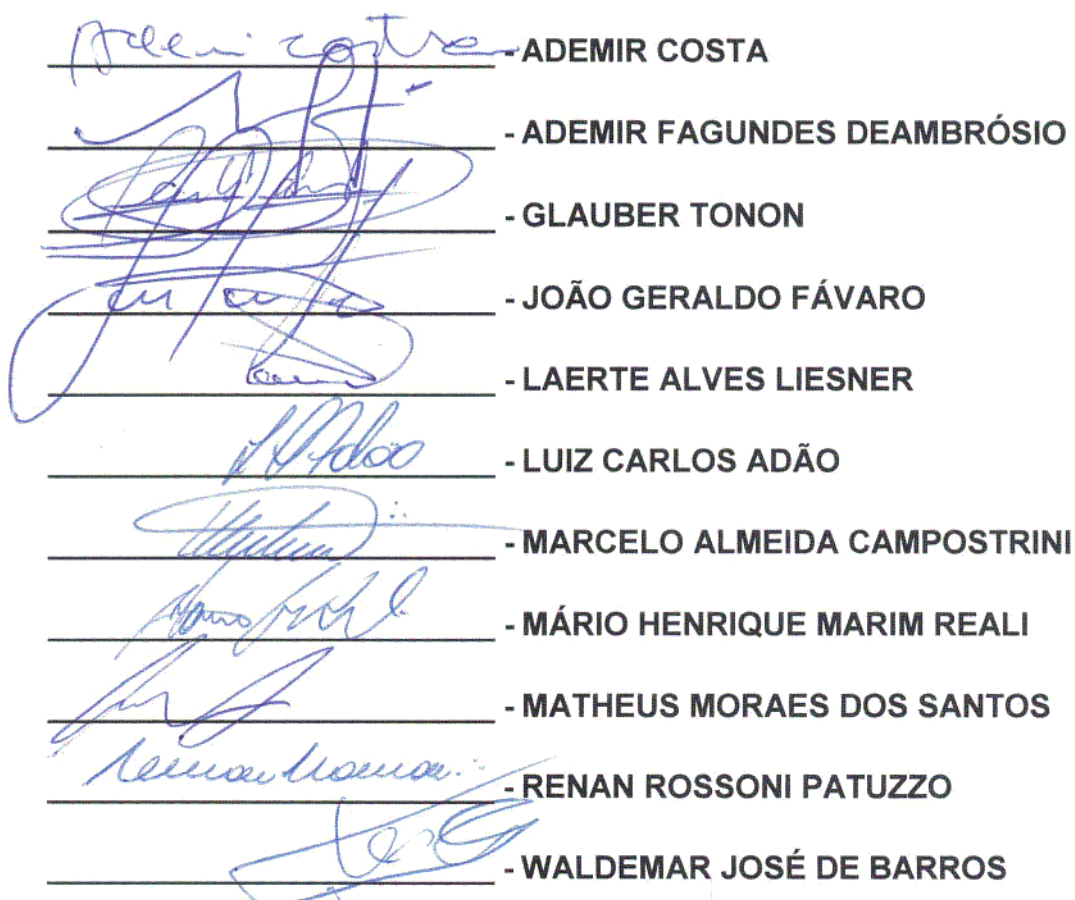 Ademir Costa - ADEMIR COSTA
- ADEMIR FAGUNDES DEAMBRÓSIO
- GLAUBER TONON
- JOÃO GERALDO FÁVARO
- LAERTE ALVES LIESNER
Adão - LUIZ CARLOS ADÃO
- MARCELO ALMEIDA CAMPOSTRINI
- MÁRIO HENRIQUE MARIM REALI
- MATHEUS MORAES DOS SANTOS
- RENAN ROSSONI PATUZZO
- WALDEMAR JOSÉ DE BARROS